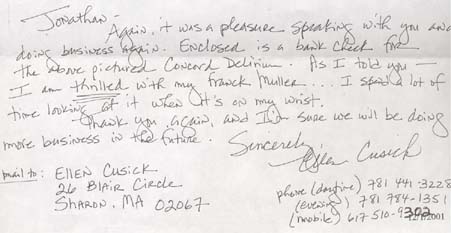 Jonathan -
Again, it was a pleasure speaking with you and
doing business again. Enclosed is a bank check for
the above pictured Concord Delirium. As I told you —
I am thrilled with my Franck Muller... I spend a lot of
time looking at it when it's on my wrist.
Thank you again, and I'm sure we will be doing
more business in the future.
Sincerely,
Ellen Cusick
mail to: ELLEN CUSICK
26 BLAIR CIRCLE
SHARON, MA 02067
phone (daytime) 781 441-3228
(evening) 781 784-1351
(mobile) 617 510-9302